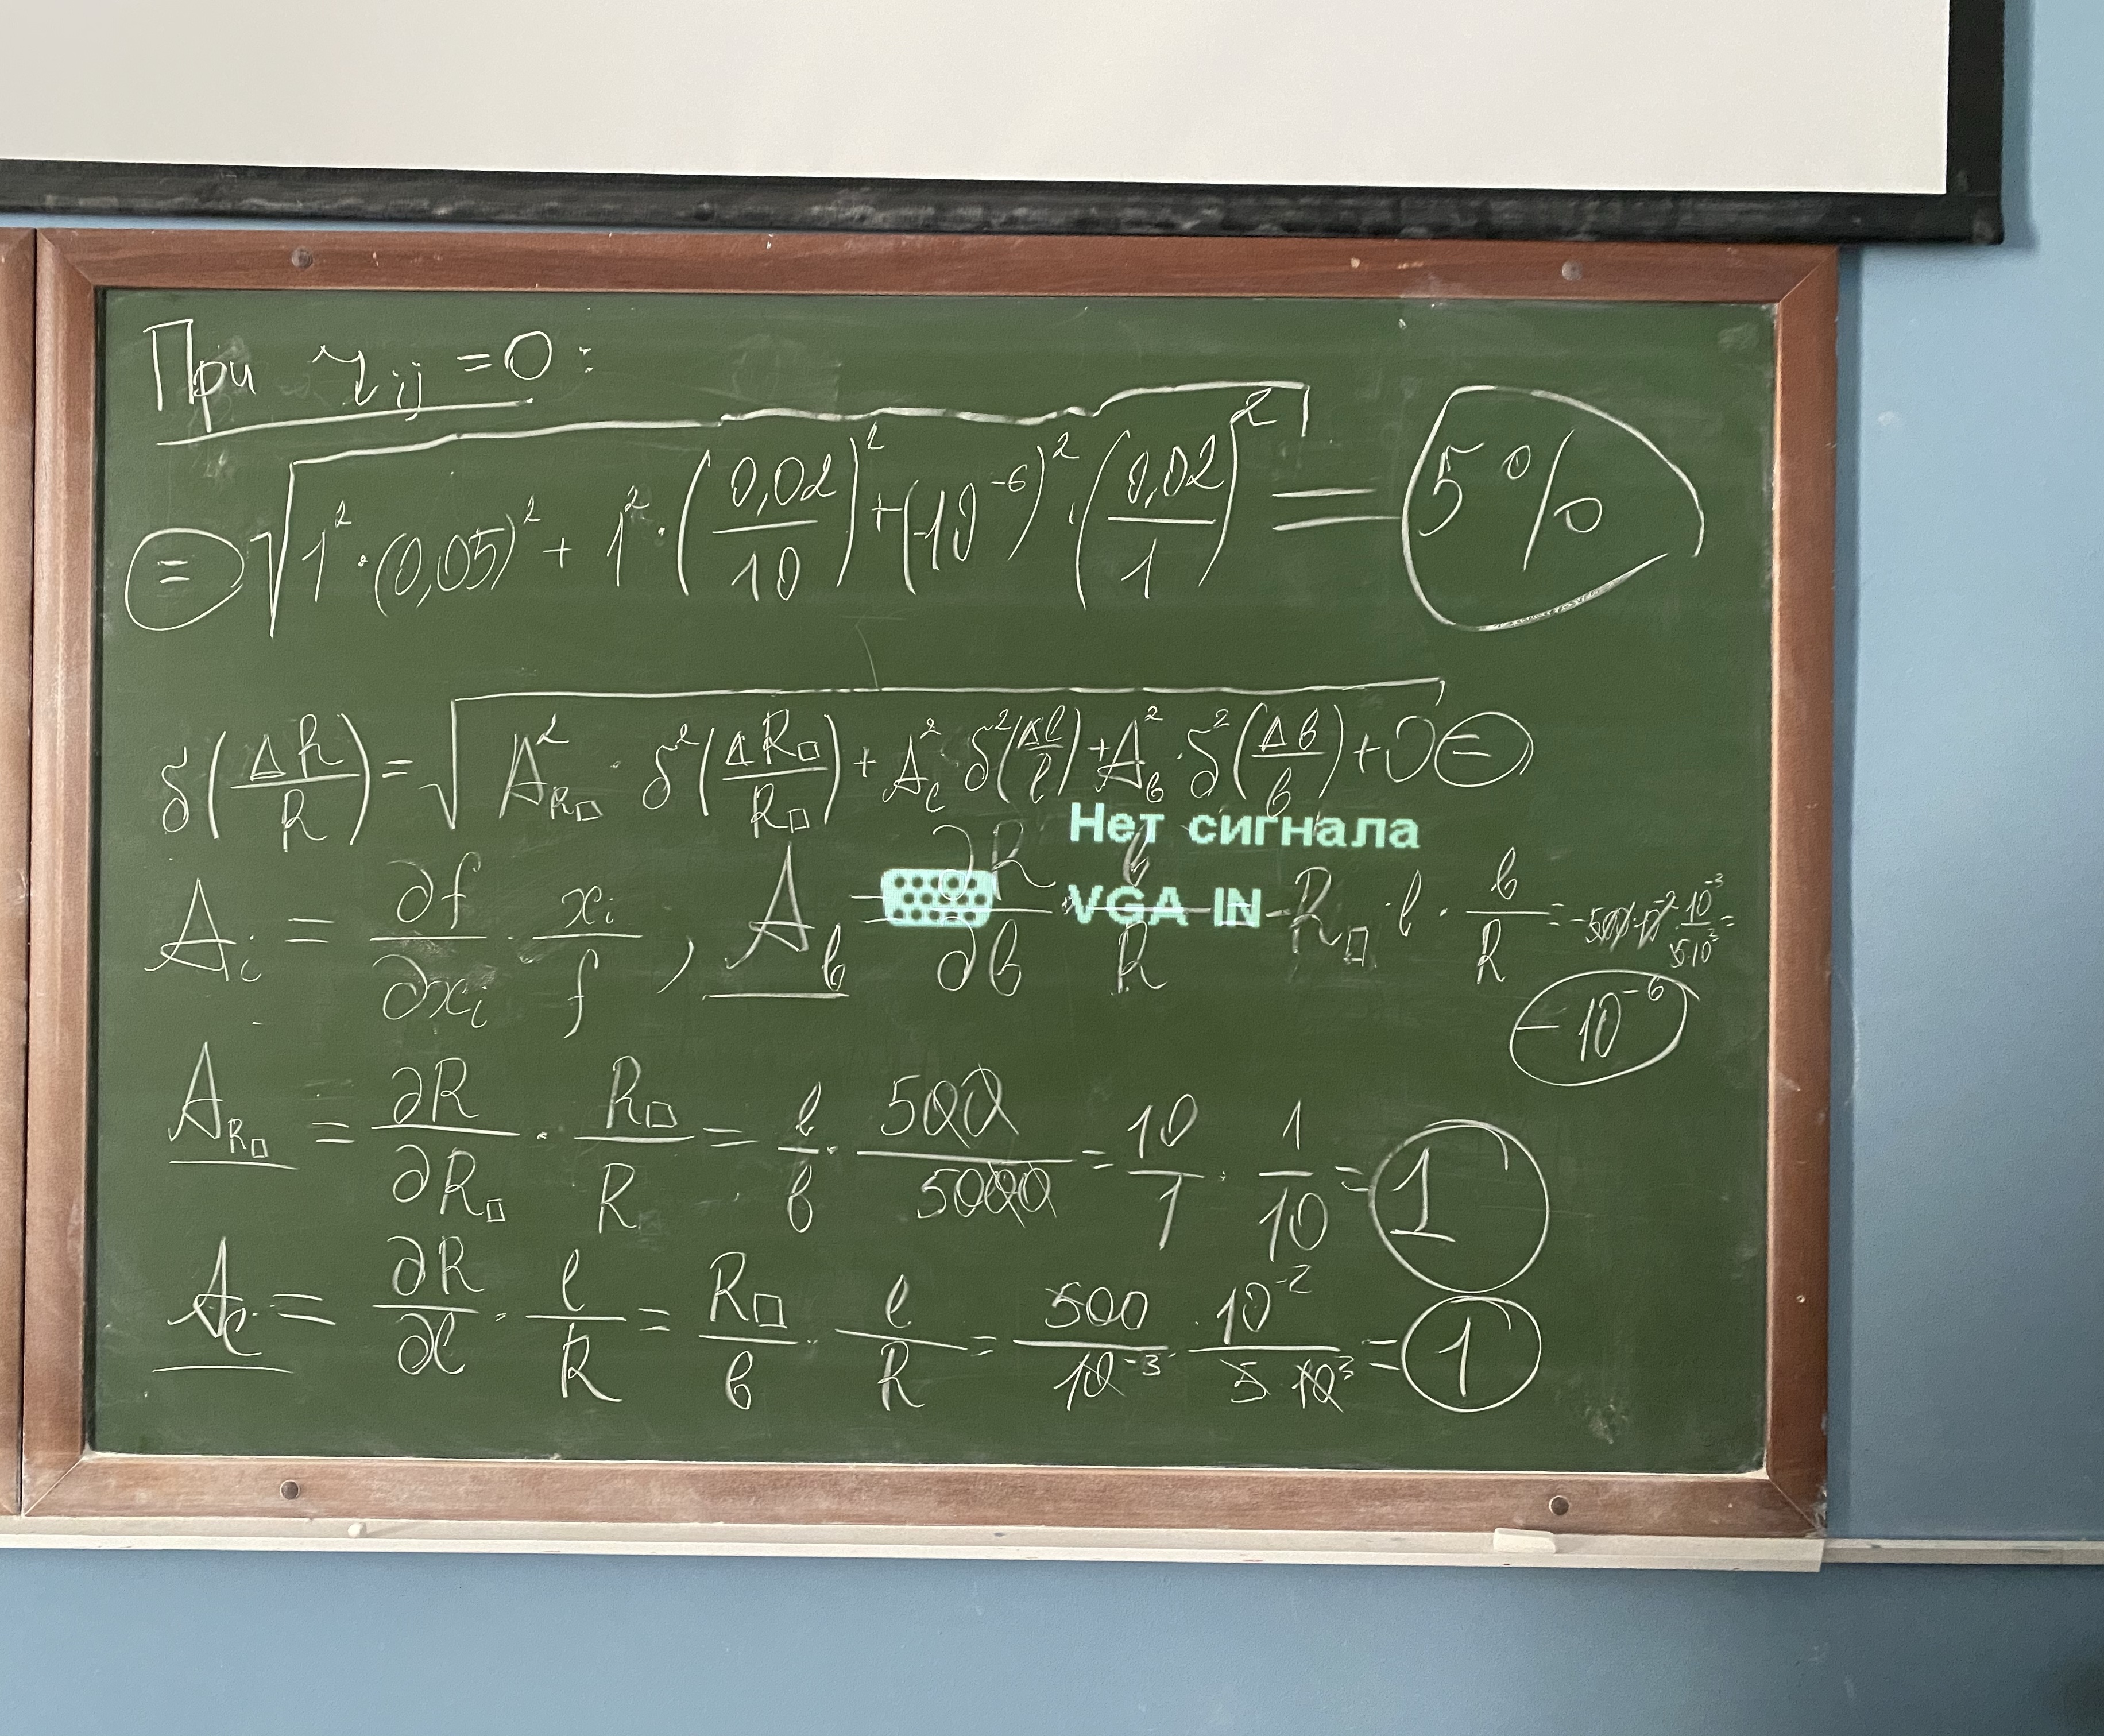 При r_ij = 0 :
= √(1² · (0,05)² + 1² · (0,02/10)² + (-10⁻⁶)² · (0,02/1)²) = 5 %
δ(ΔR/R) = √(A²_R□ · δ²(ΔR□/R□) + A²_ℓ δ²(Δℓ/ℓ) + A²_в · δ²(Δв/в) + 0 =
Нет сигнала
VGA IN
A_i = ∂f/∂x_i · x_i/f , A_в = ∂R/∂в · в/R = -R□ · ℓ · в/R = -500 · 10⁻² · 10⁻³/5·10³ =
-10⁻⁶
A_R□ = ∂R/∂R□ · R□/R = ℓ/в · 500/5000 = 10/1 · 1/10 = 1
A_ℓ = ∂R/∂ℓ · ℓ/R = R□/в · ℓ/R = 500/10⁻³ · 10⁻²/5·10³ = 1